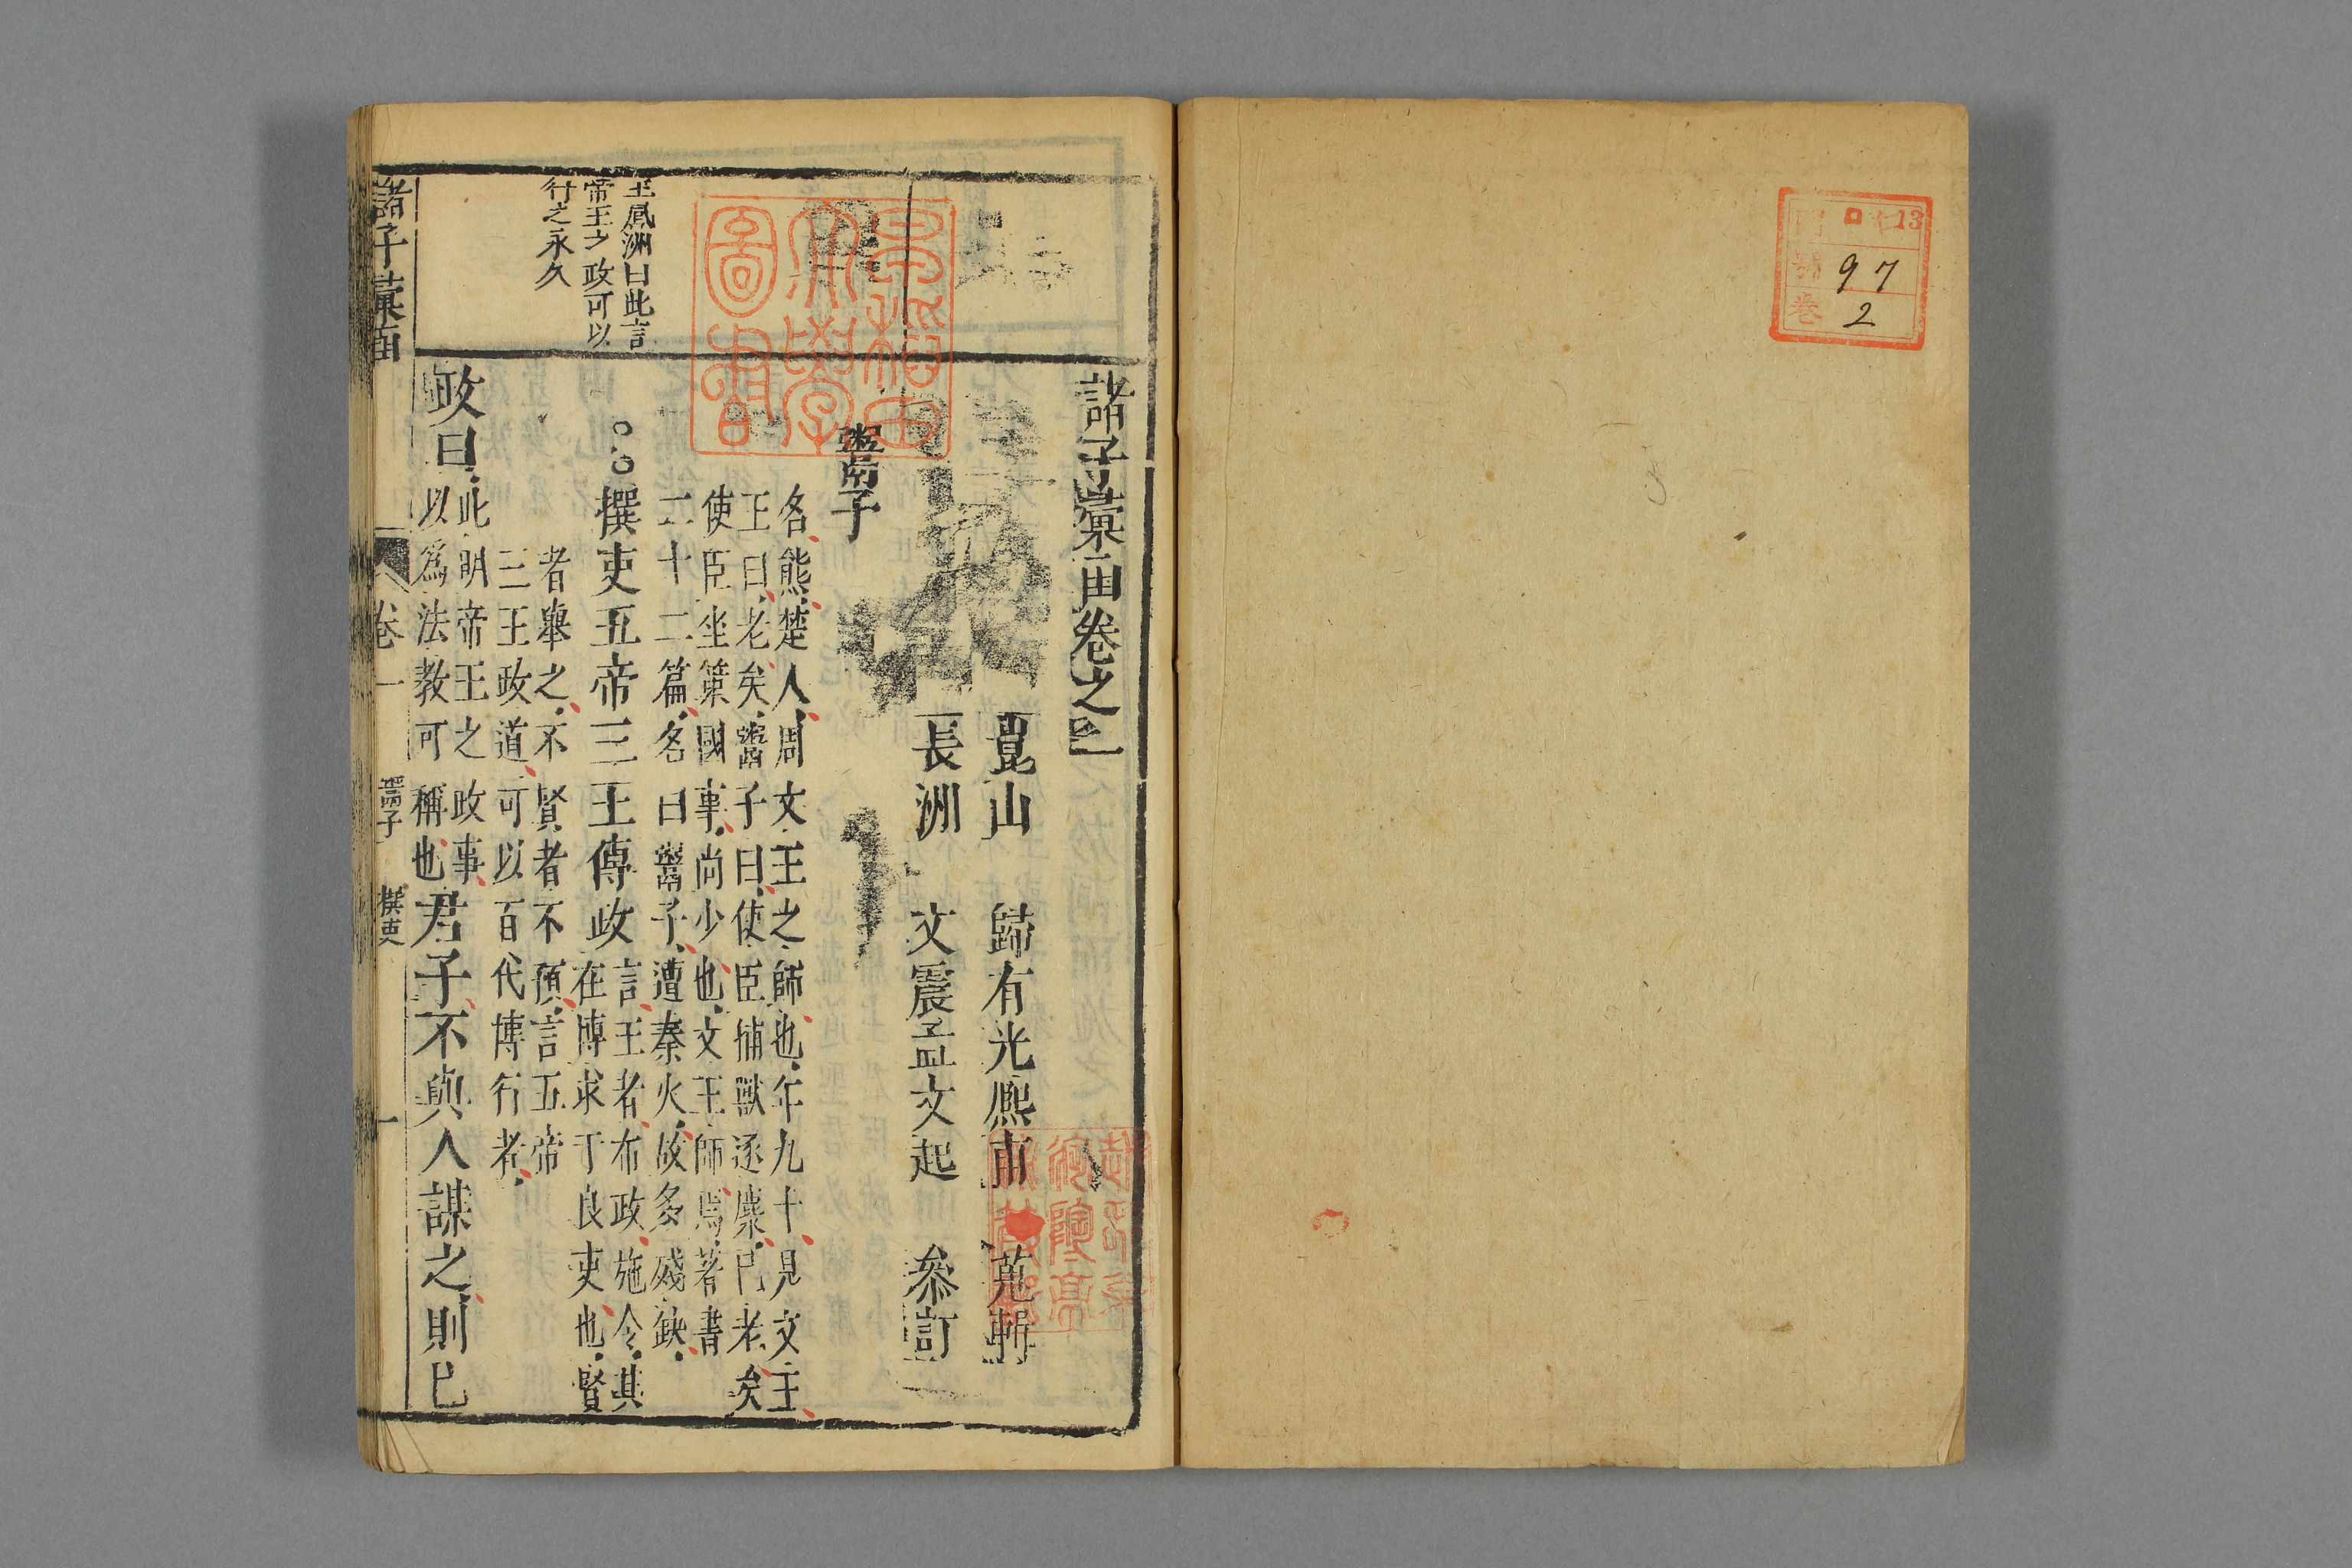 13
97
2
諸子彙函卷之一
崑山 歸有光熙甫 蒐輯
長洲 文震孟文起 叅訂
鬻子
名熊楚人周文王之師也年九十見文王
王曰老矣鬻子曰使臣捕獸逐麋已老矣
使臣坐策國事尚少也文王師焉著書
二十二篇名曰鬻子遭秦火故多殘缺
撰吏五帝三王傳政
言王者布政施令其
在博求于良吏也賢
者舉之不賢者不預言五帝
三王政道可以百代博行者
政曰
此明帝王之政事
以為法教可稱也
君子不與人謀之則已
王鳳洲曰此言
帝王之政可以
行之永久
早稻田
大學
圖書
諸子彙函
卷一
鬻子
撰吏
一